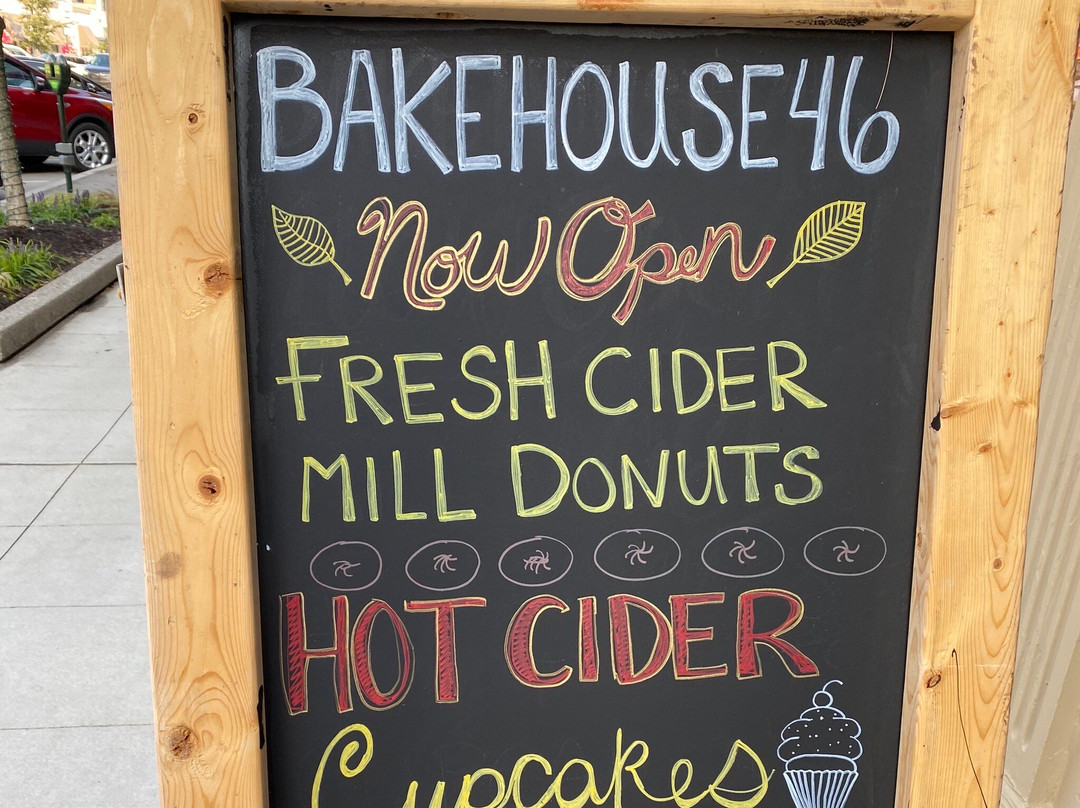 BAKEHOUSE 46
Now Open
FRESH CIDER
MILL DONUTS
HOT CIDER
Cupcakes